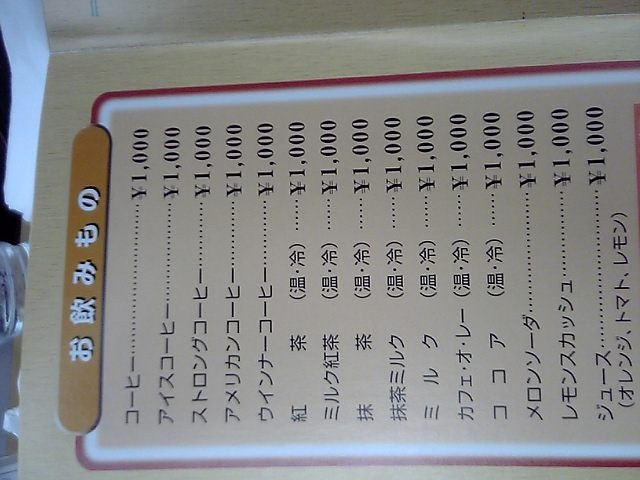 お飲みもの
コーヒー……………………¥1,000
アイスコーヒー……………¥1,000
ストロングコーヒー………¥1,000
アメリカンコーヒー………¥1,000
ウインナーコーヒー………¥1,000
紅茶（温・冷）……¥1,000
ミルク紅茶（温・冷）……¥1,000
抹茶（温・冷）……¥1,000
抹茶ミルク（温・冷）……¥1,000
ミルク（温・冷）……¥1,000
カフェ・オ・レー（温・冷）……¥1,000
ココア（温・冷）……¥1,000
メロンソーダ………………¥1,000
レモンスカッシュ…………¥1,000
ジュース……………………¥1,000
（オレンジ、トマト、レモン）